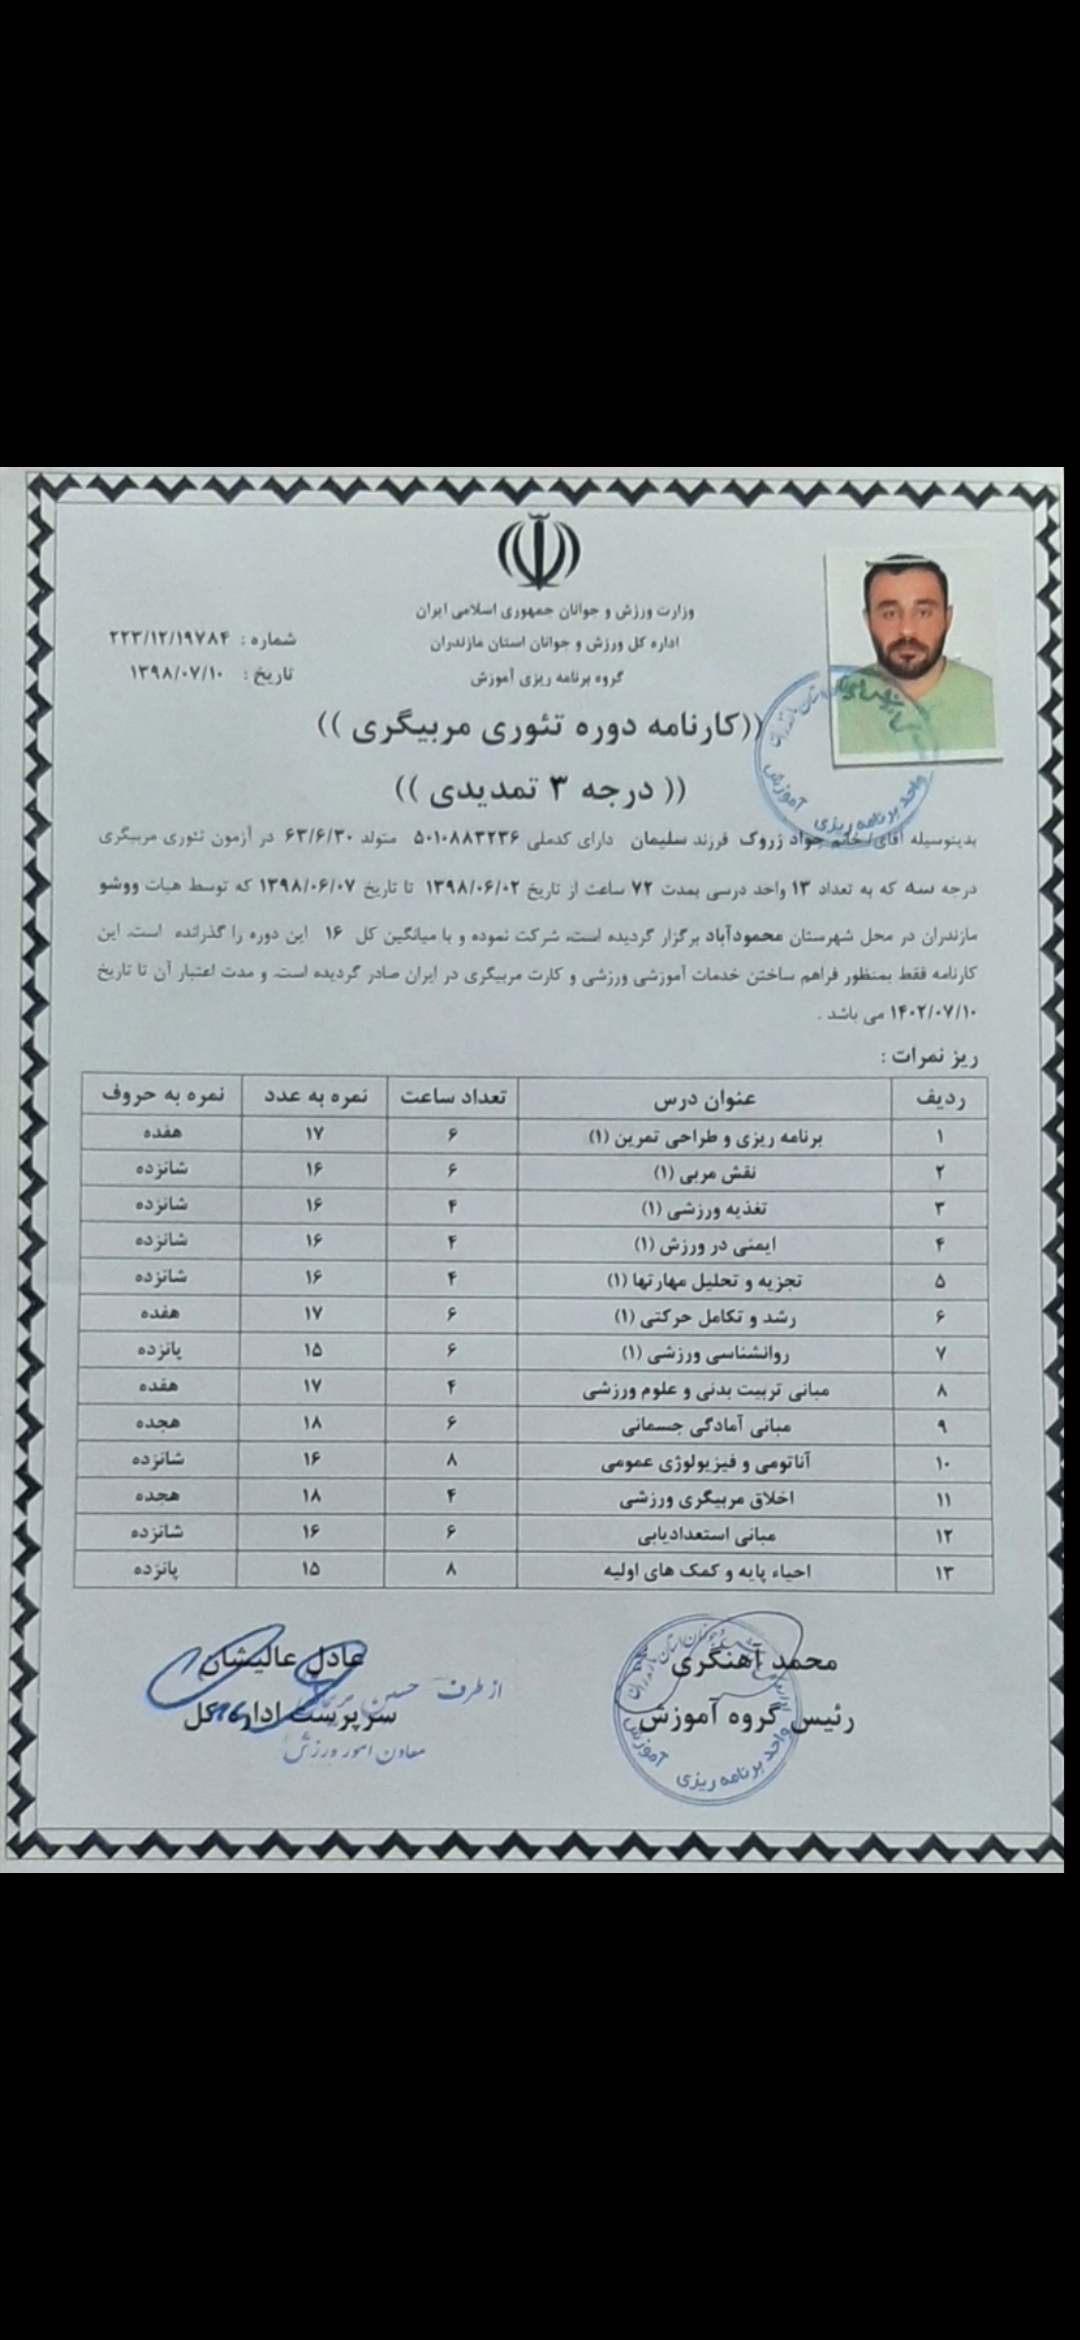 وزارت ورزش و جوانان جمهوری اسلامی ایران
اداره کل ورزش و جوانان استان مازندران
گروه برنامه ریزی آموزش
شماره : ۲۲۳/۱۲/۱۹۷۸۴
تاریخ : ۱۳۹۸/۰۷/۱۰
((کارنامه دوره تئوری مربیگری ))
(( درجه ۳ تمدیدی ))
واحد برنامه ریزی آموزش
بدینوسیله آقای/خانم جواد زروک فرزند سلیمان دارای کدملی ۵۰۱۰۸۸۳۲۳۶ متولد ۶۳/۶/۳۰ در آزمون تئوری مربیگری
درجه سه که به تعداد ۱۳ واحد درسی بمدت ۷۲ ساعت از تاریخ ۱۳۹۸/۰۶/۰۲ تا تاریخ ۱۳۹۸/۰۶/۰۷ که توسط هیات ووشو
مازندران در محل شهرستان محمودآباد برگزار گردیده است، شرکت نموده و با میانگین کل ۱۶ این دوره را گذرانده است. این
کارنامه فقط بمنظور فراهم ساختن خدمات آموزشی ورزشی و کارت مربیگری در ایران صادر گردیده است. و مدت اعتبار آن تا تاریخ
۱۴۰۲/۰۷/۱۰ می باشد .
ریز نمرات :
ردیف عنوان درس تعداد ساعت نمره به عدد نمره به حروف
۱ برنامه ریزی و طراحی تمرین (۱) ۶ ۱۷ هفده
۲ نقش مربی (۱) ۶ ۱۶ شانزده
۳ تغذیه ورزشی (۱) ۴ ۱۶ شانزده
۴ ایمنی در ورزش (۱) ۴ ۱۶ شانزده
۵ تجزیه و تحلیل مهارتها (۱) ۴ ۱۶ شانزده
۶ رشد و تکامل حرکتی (۱) ۶ ۱۷ هفده
۷ روانشناسی ورزشی (۱) ۶ ۱۵ پانزده
۸ مبانی تربیت بدنی و علوم ورزشی ۴ ۱۷ هفده
۹ مبانی آمادگی جسمانی ۶ ۱۸ هجده
۱۰ آناتومی و فیزیولوژی عمومی ۸ ۱۶ شانزده
۱۱ اخلاق مربیگری ورزشی ۴ ۱۸ هجده
۱۲ مبانی استعدادیابی ۶ ۱۶ شانزده
۱۳ احیاء پایه و کمک های اولیه ۸ ۱۵ پانزده
محمد آهنگری
رئیس گروه آموزش
واحد برنامه ریزی آموزش
عادل عالیشان
از طرف حسین
سرپرست اداره کل
معاون امور ورزش